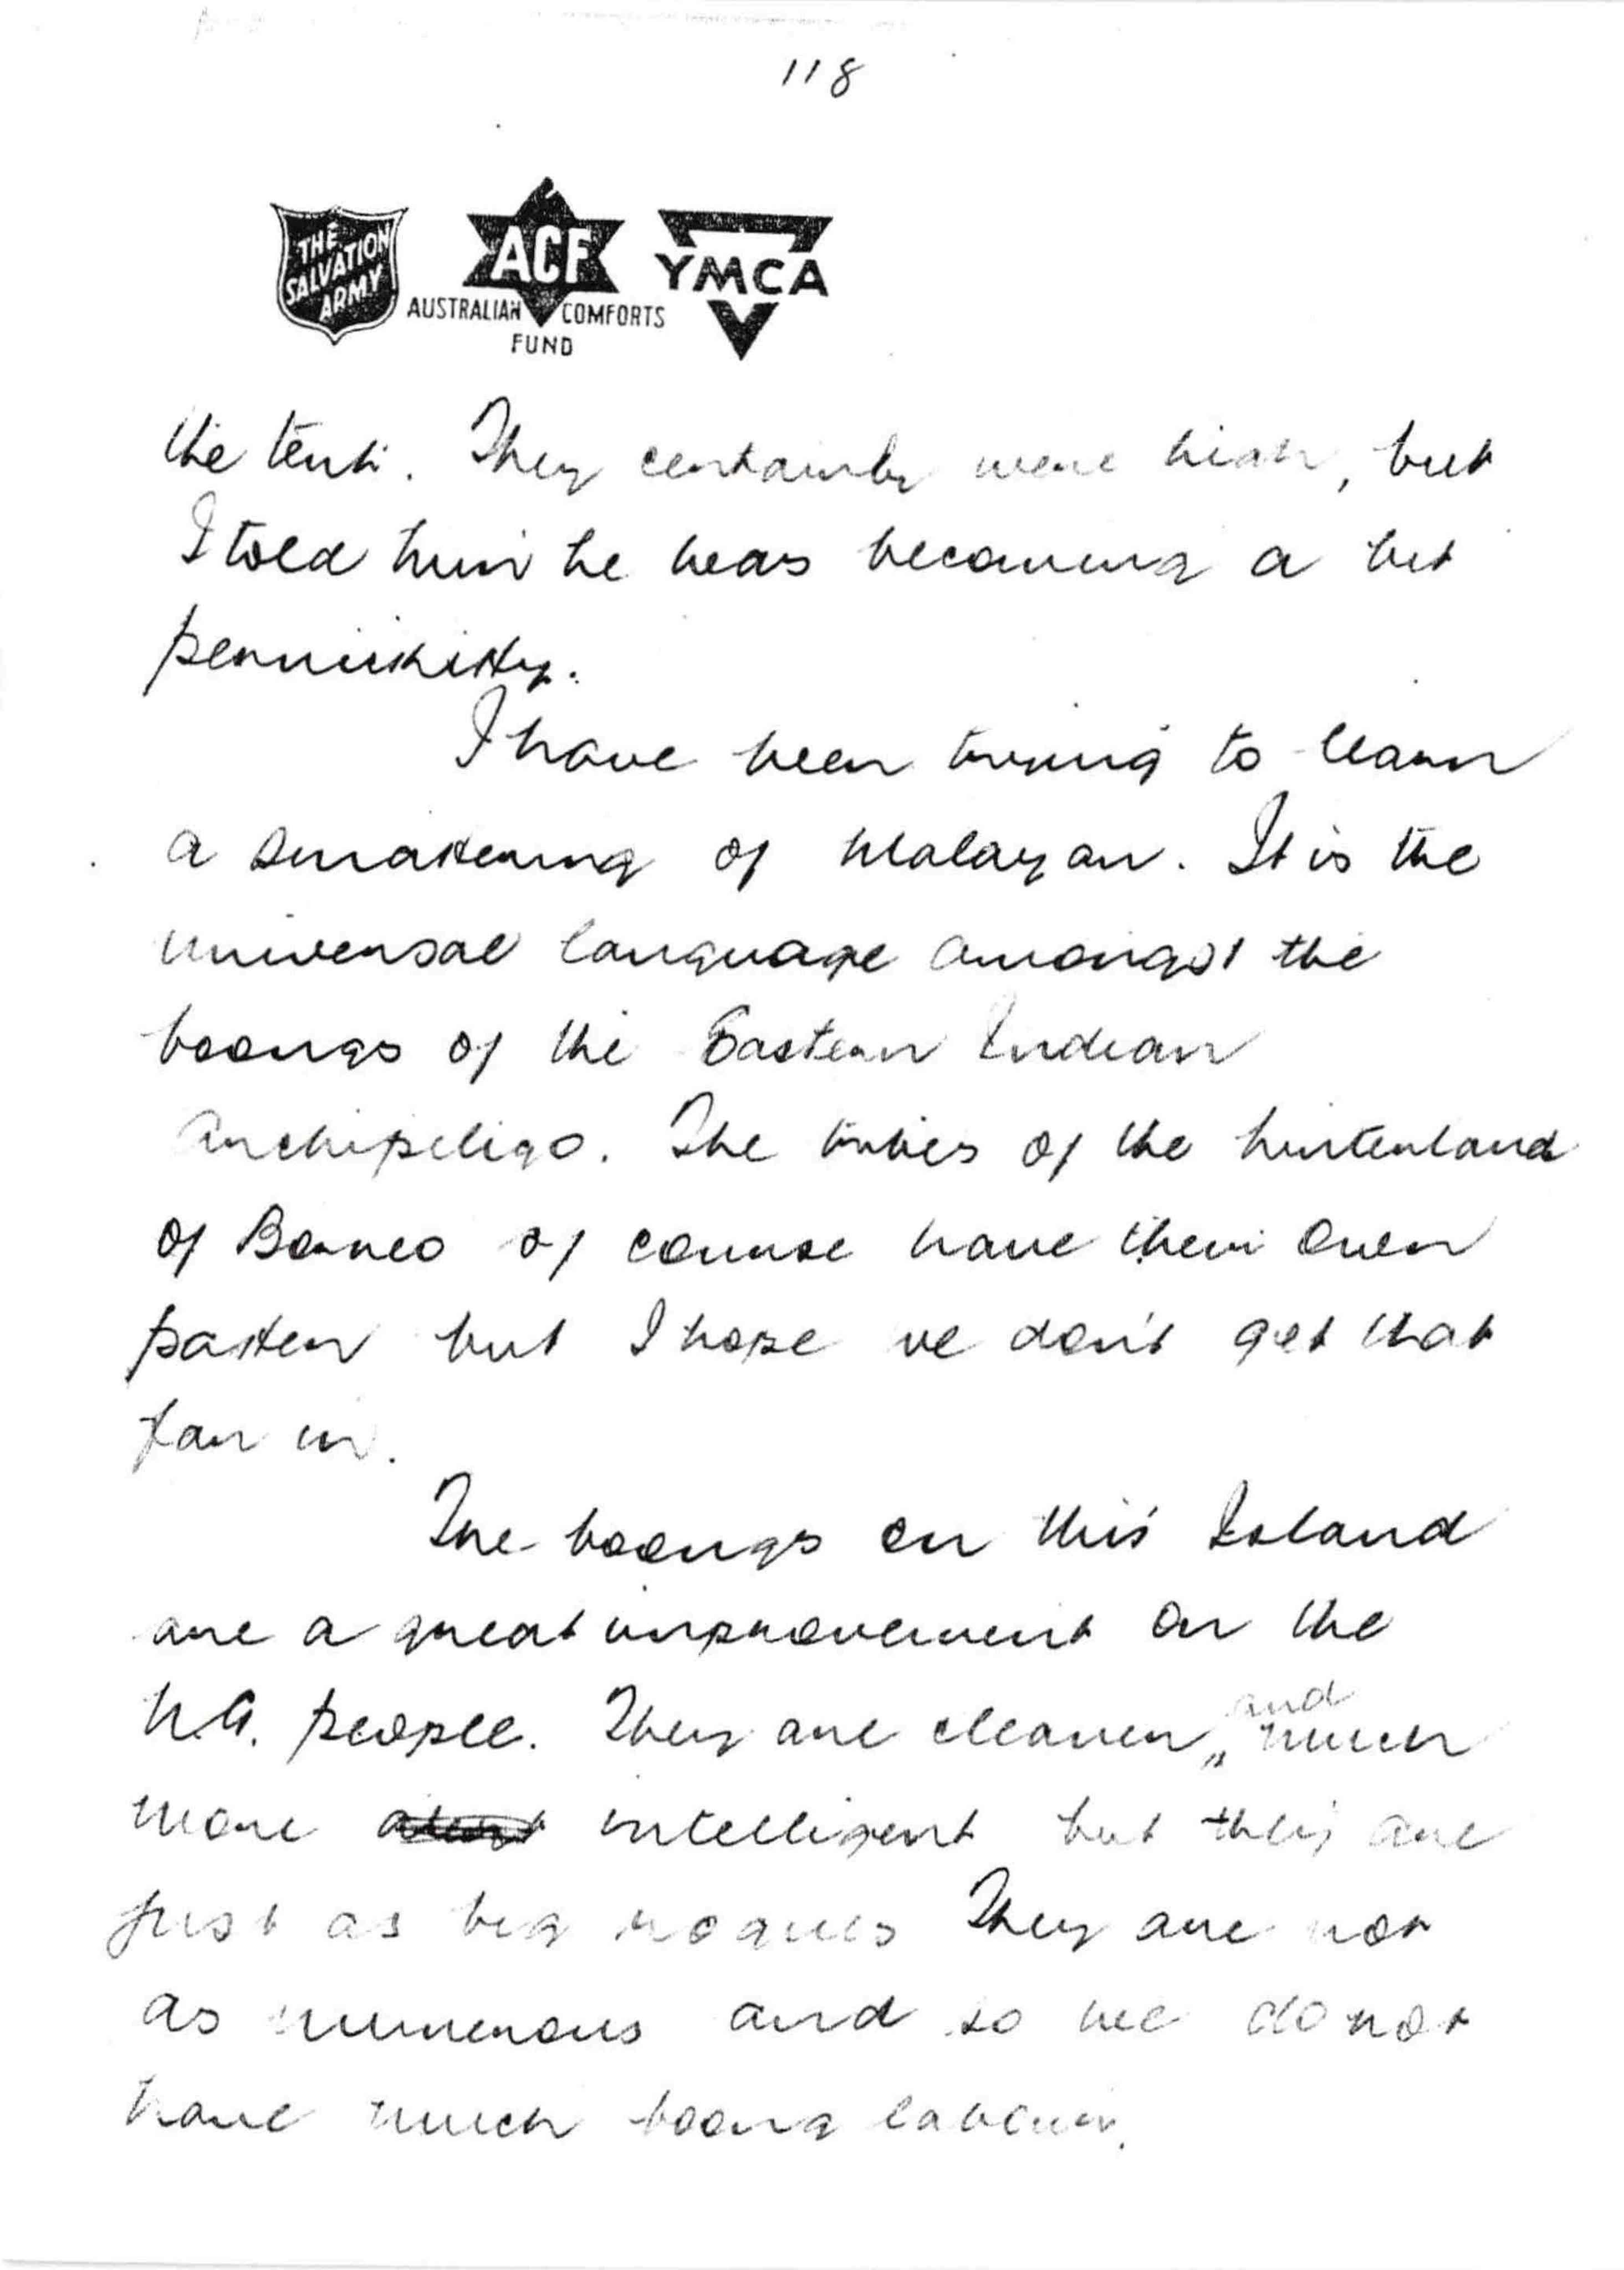 118
THE SALVATION ARMY
ACF
AUSTRALIAN COMFORTS FUND
YMCA
the tent. They certainly were high, but
I told him he was becoming a bit
pernickitty.
I have been trying to learn
a smattering of Malayan. It is the
universal language amongst the
boongs of the Eastern Indian
Archipeligo. The tribes of the hinterland
of Borneo of course have their own
patter but I hope we don't get that
far in.
The boongs on this Island
are a great improvement on the
N.G. people. They are cleaner, and much
more intelligent but they are
just as big rogues They are not
as numerous and so we do not
have much boong labour.